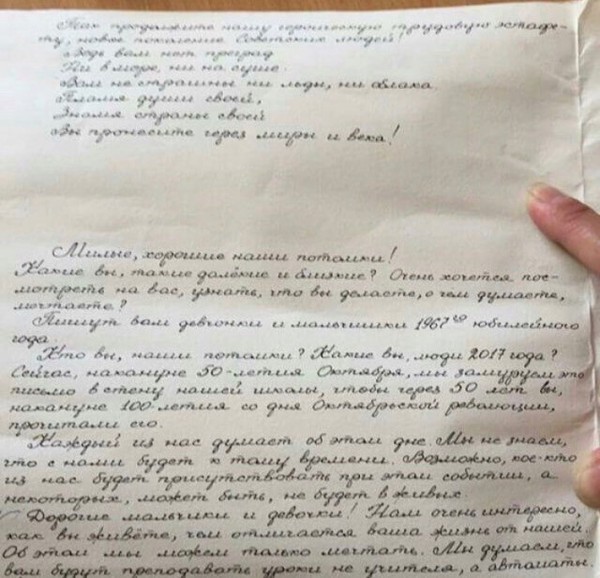 Так продолжите нашу героическую трудовую эстафе-
ту, новое поколение Советских людей!
Ведь вам нет преград
Ни в море, ни на суше.
Вам не страшны ни льды, ни облака.
Пламя души своей,
Знамя страны своей
Вы пронесите через миры и века!
Милые, хорошие наши потомки!
Какие вы, такие далёкие и близкие? Очень хочется пос-
мотреть на вас, узнать, что вы делаете, о чем думаете,
мечтаете?
Пишут вам девчонки и мальчишки 1967го юбилейного
года.
Кто вы, наши потомки? Какие вы, люди 2017 года?
Сейчас, накануне 50-летия Октября, мы замуруем это
письмо в стену нашей школы, чтобы через 50 лет вы,
накануне 100-летия со дня Октябрьской революции,
прочитали его.
Каждый из нас думает об этом дне. Мы не знаем,
что с нами будет к тому времени. Возможно, кое-кто
из нас будет присутствовать при этом событии, а
некоторых, может быть, не будет в живых.
Дорогие мальчики и девочки! Нам очень интересно,
как вы живёте, чем отличается ваша жизнь от нашей.
Об этом мы можем только мечтать. Мы думаем, что
вам будут преподавать уроки не учителя, а автоматы.